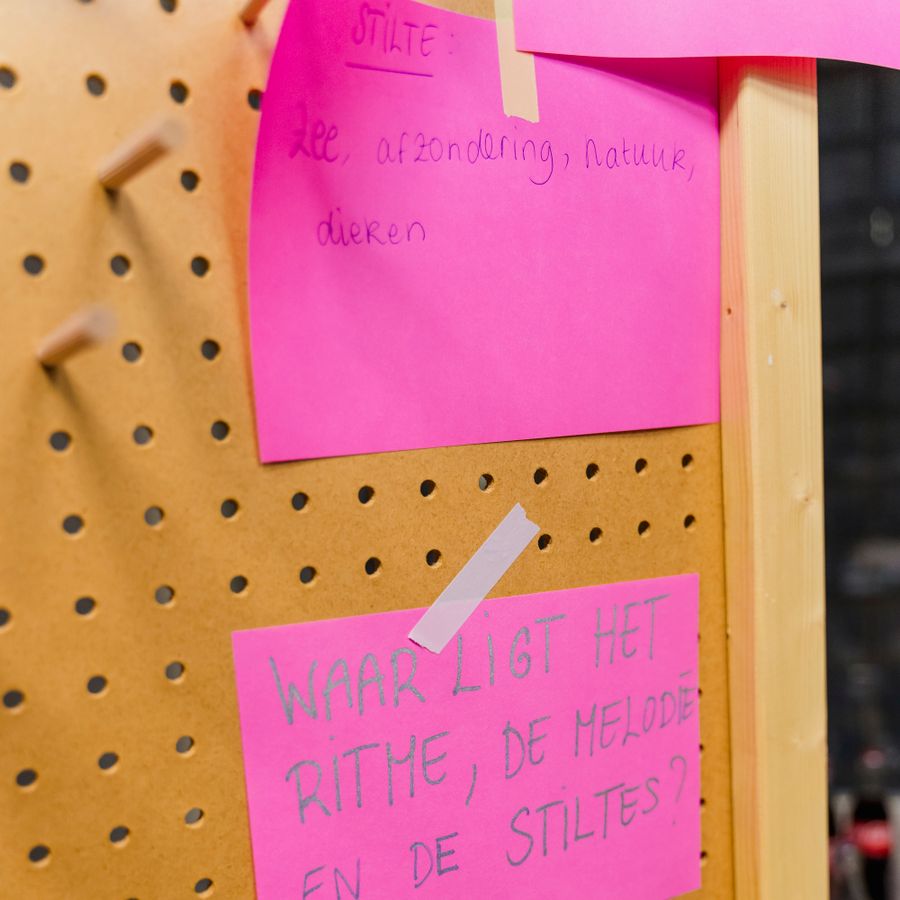 STILTE:
Zee, afzondering, natuur,
dieren
WAAR LIGT HET
RITME, DE MELODIE
EN DE STILTES?